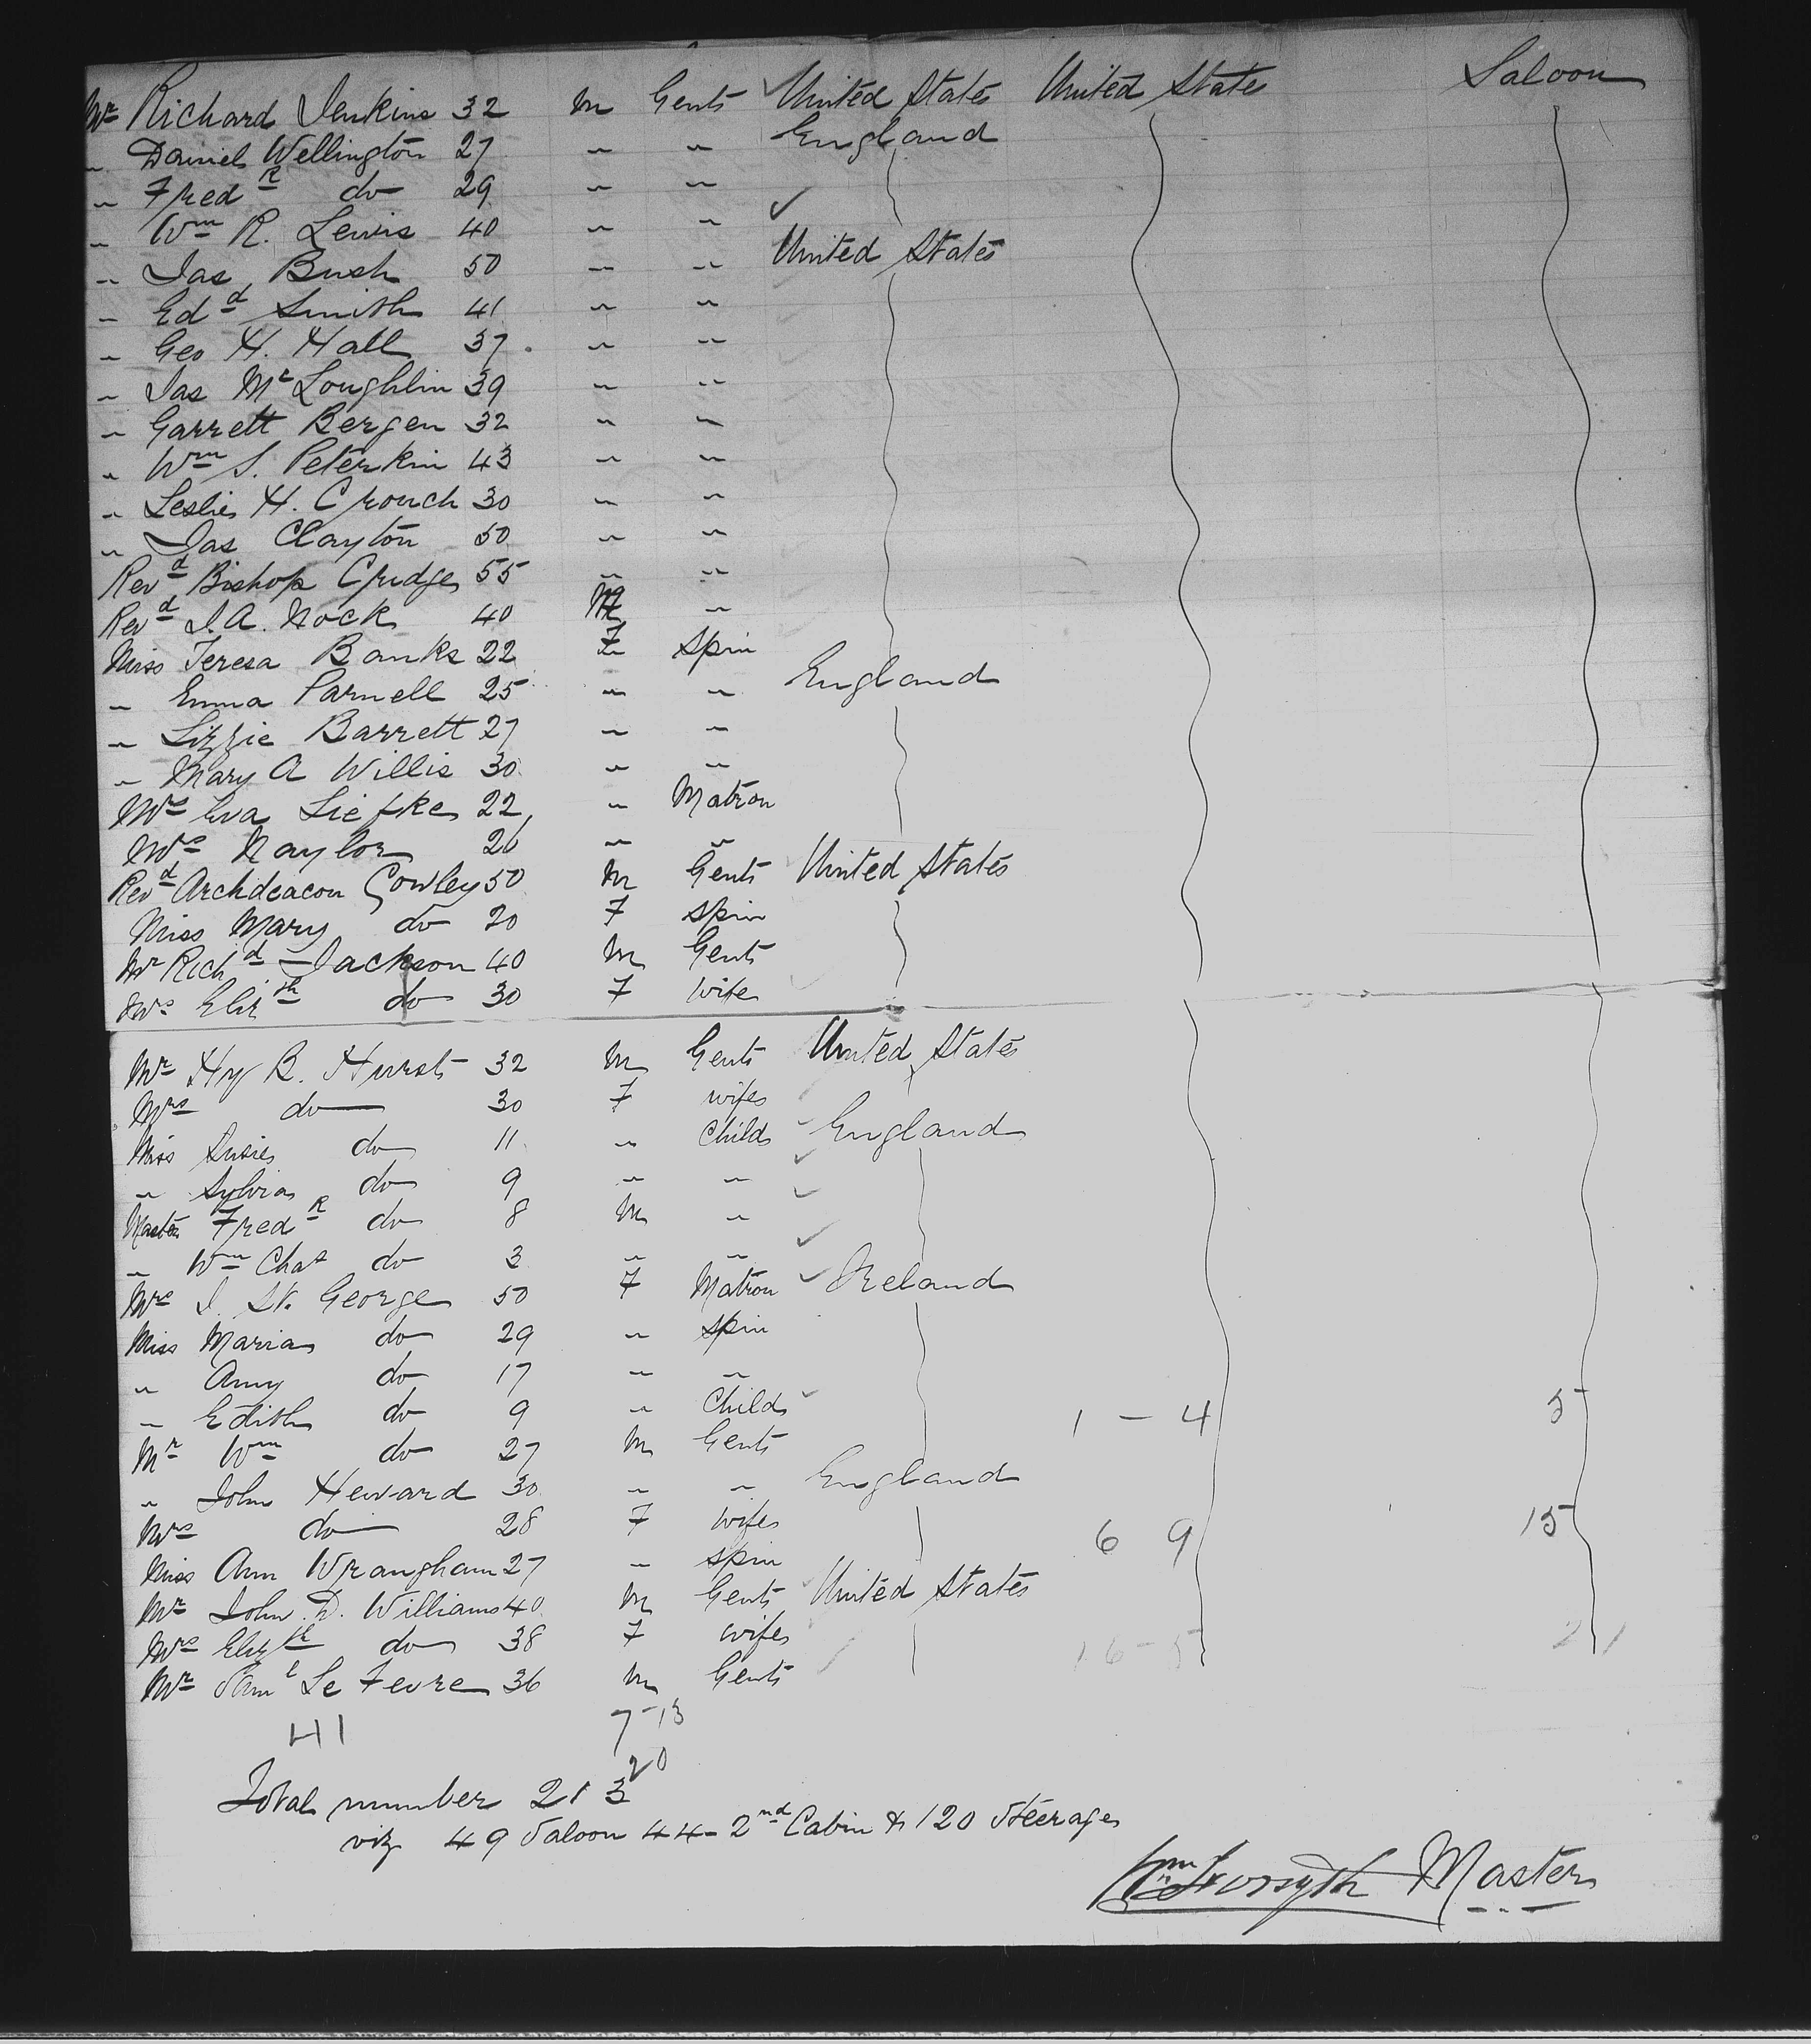 Mr Richard Jenkins 32 m Gent United States United States Saloon
" Daniel Wellington 27 " " England
" Fredk do 29 " "
" Wm R. Lewis 40 " "
" Jas Bush 50 " " United States
" Edd Smith 41 " "
" Geo H. Hall 37 " "
" Jas McLoughlin 39 " "
" Garrett Bergen 32 " "
" Wm S. Peterkin 43 " "
" Leslie H. Crouch 30 " "
" Jas Clayton 50 " "
Revd Bishop Cridge 55 " "
Revd J.A. Nock 40 M "
Miss Teresa Banks 22 F Spin
" Emma Parnell 25 " " England
" Lizzie Barrett 27 " "
" Mary A Willis 30 " "
Mrs Eva Liefke 22 " Matron
Mrs Naylor 26 " "
Revd Archdeacon Cowley 50 m Gent United States
Miss Mary do 20 F Spin
Mr Richd Jackson 40 m Gent
Mrs Elizth do 30 F Wife
Mr Hy B. Hurst 32 m Gent United States
Mrs do 30 F wife
Miss Susie do 11 " Child England
" Sylvia do 9 " "
Master Fredk do 8 m "
" Wm Chas do 3 " "
Mrs J. St. George 50 F Matron Ireland
Miss Maria do 29 " Spin
" Amy do 17 " "
" Edith do 9 " Child 1 - 4 5
Mr Wm do 27 m Gent
" John Heward 30 " " England
Mrs do 28 F Wife 6 9 15
Miss Ann Wrangham 27 " Spin
Mr John D. Williams 40 m Gent United States
Mrs Elizth do 38 F wife 16-5 21
Mr Saml Le Fevre 36 m Gent
41 7-13
20
Total number 213
viz 49 Saloon 44 - 2nd Cabin & 120 Steerage
Wm Forsyth Master